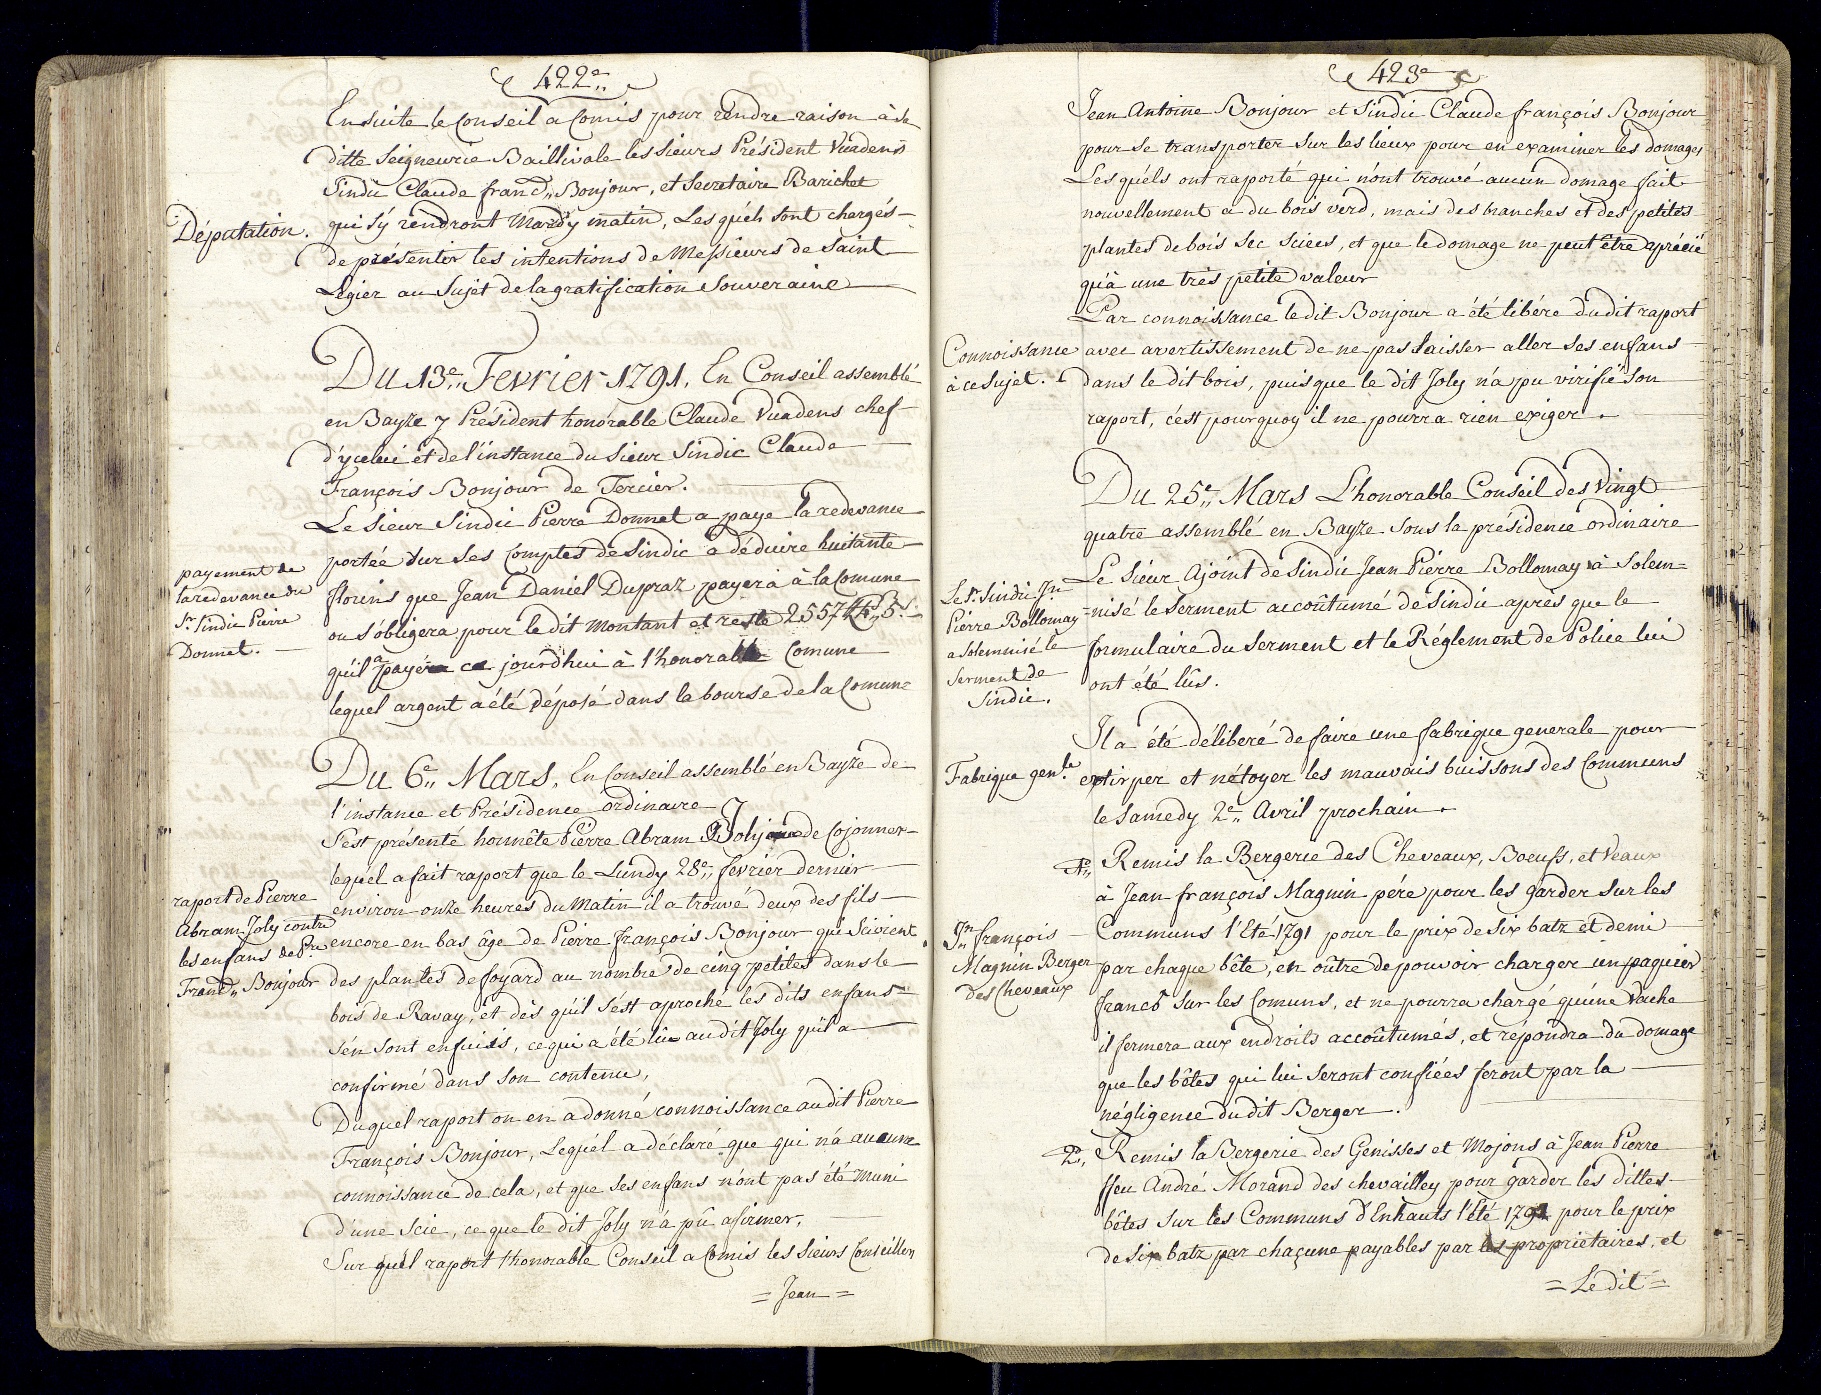 422e
Ensuite le Conseil a Comis pour rendre raison à sa
ditte Seigneurie Baillivale les Sieurs Président Vuadens
Sindic Claude franç. Bonjour, et Secretaire Barichet
Députation.
qui s'y rendront Mardy matin, Les quéls sont chargés
de présenter les intentions de Messieurs de Saint
Légier au Sujet de la gratification Souveraine
Du 13e Fevrier 1791. En Conseil assemblé
en Bayze 7 Président honorable Claude Vuadens chef
d'ycelui et de l'instance du Sieur Sindic Claude
François Bonjour de Tercier.
payement de
la redevance du
Sr Sindic Pierre
Donnet.
Le Sieur Sindic Pierre Donnet a paye la redevance
portée sur ses Comptes de Sindic a déduire huitante
florins que Jean Daniel Dupraz payera à la Comune
ou s'obligera pour le dit montant et reste 2557
qu'il a payé ce jourd'hui à l'honorable Comune
lequel argent a été déposé dans la bourse de la Comune
Du 6e Mars. En Conseil assemblé en Bayze de
l'instance et Présidence ordinaire
S'est présenté honnête Pierre Abram Joly de Cojonnex
lequel a fait raport que le Lundy 28e fevrier dernier
raport de Pierre
Abram Joly contre
les enfans de P.re
Franç. Bonjour
environ onze heures du Matin il a trouvé deux des fils
encore en bas âge de Pierre françois Bonjour qui Scioient
des plantes de foyard au nombre de cinq petites dans le
bois de Ravay, et dès qu'il s'est aproché les dits enfans
s'en sont enfuis, ce qui a été lû au dit Joly qu'il a
confirmé dans son contenu,
Duquel raport on en a donné connoissance au dit Pierre
François Bonjour, Lequel a déclaré que qui n'a aucune
connoissance de cela, et que ses enfans n'ont pas été muni
d'une Scie, ce que le dit Joly n'a pû afirmer,
Sur quel raport l'honorable Conseil a Comis les Sieurs Conseillers
= Jean =
423e
Jean Antoine Bonjour et Sindic Claude françois Bonjour
pour se transporter sur les lieux pour en examiner les domages
Les quéls ont raporté qui n'ont trouvé aucun domage fait
nouvellement a du bois verd, mais des branches et des petites
plantes de bois sec sciees, et que le domage ne peut être aprécié
qu'à une très petite valeur
Par connoissance le dit Bonjour a été libére du dit raport
Connoissance
à ce sujet.
avec avertissement de ne pas laisser aller ses enfans
dans le dit bois, puis que le dit Joly n'a pu virifié son
raport, c'est pourquoy il ne pourra rien exiger.
Du 25e Mars L'honorable Conseil des Vingt
quatre assemblé en Bayze sous la présidence ordinaire
Le Sr. Sindic Jn
Pierre Bollomay
a solemnisé le
serment de
Sindic.
Le Sieur Ajoint de Sindic Jean Pierre Bollomay à Solem=
=nisé le Serment accoûtumé de Sindic après que le
formulaire du serment et le Réglement de Police lui
ont été lûs.
Fabrique gen.le
Il a été délibéré de faire une fabrique generale pour
extirper et nétoyer les mauvais buissons des Communs
le Samedy 2e Avril prochain.
Jn. françois
Magnin Berger
des Cheveaux
1e. Remis la Bergerie des Cheveaux, Boeufs, et Veaux
à Jean françois Magnin pére pour les garder sur les
Communs l'Eté 1791 pour le prix de six batz et demi
par chaque bête, en oûtre de pouvoir charger un paquier
franco sur les Comuns, et ne pourra chargé qu'une Vache
il fermera aux endroits accoûtumés, et répondra du domage
que les bêtes qui lui seront confiées feront par la
négligence du dit Berger.
2, Remis la Bergerie des Genisses et Mojons à Jean Pierre
ffeu André Morand des chevailley pour garder les dittes
bêtes sur les Communs d'Enhauts l'été 1791 pour le prix
de six batz par chacune payables par les proprietaires, et
= Le dit =